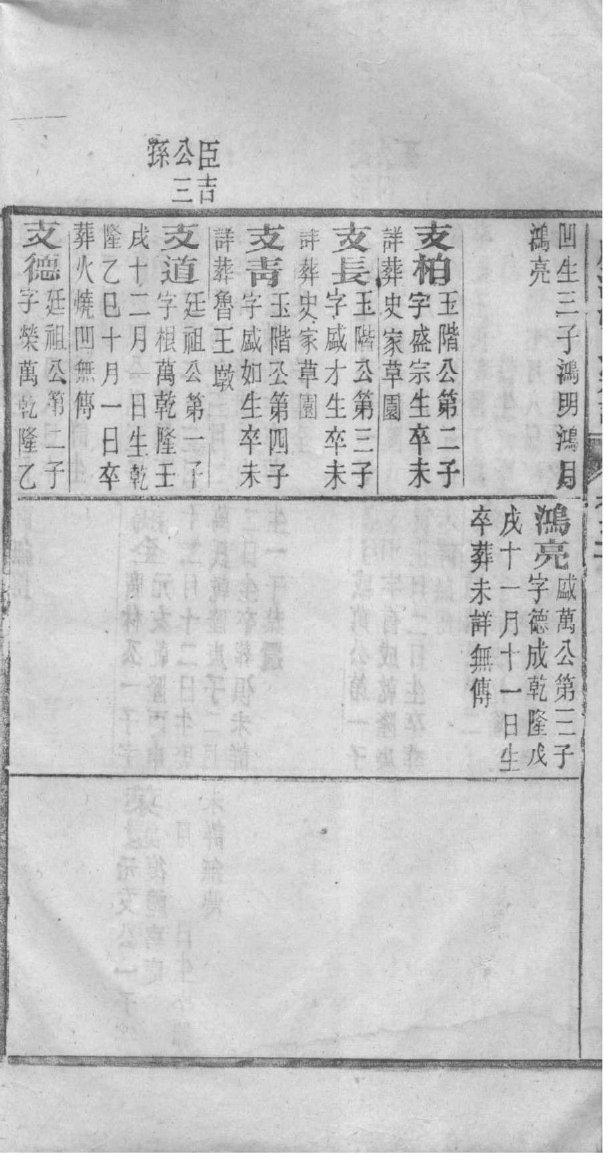 臣吉
公三
孫
凹生三子鴻明鴻月
鴻亮
支柏
玉階公第二子
字盛宗生卒未
詳葬史家草園
支長
玉階公第三子
字盛才生卒未
詳葬史家草園
支青
玉階公第四子
字盛如生卒未
詳葬魯王墩
支道
廷祖公第一子
字根萬乾隆壬
戌十二月一日生乾
隆乙巳十月一日卒
葬火燒凹無傳
支德
廷祖公第二子
字榮萬乾隆乙
鴻亮
盛萬公第三子
字德成乾隆戊
戌十一月十一日生
卒葬未詳無傳